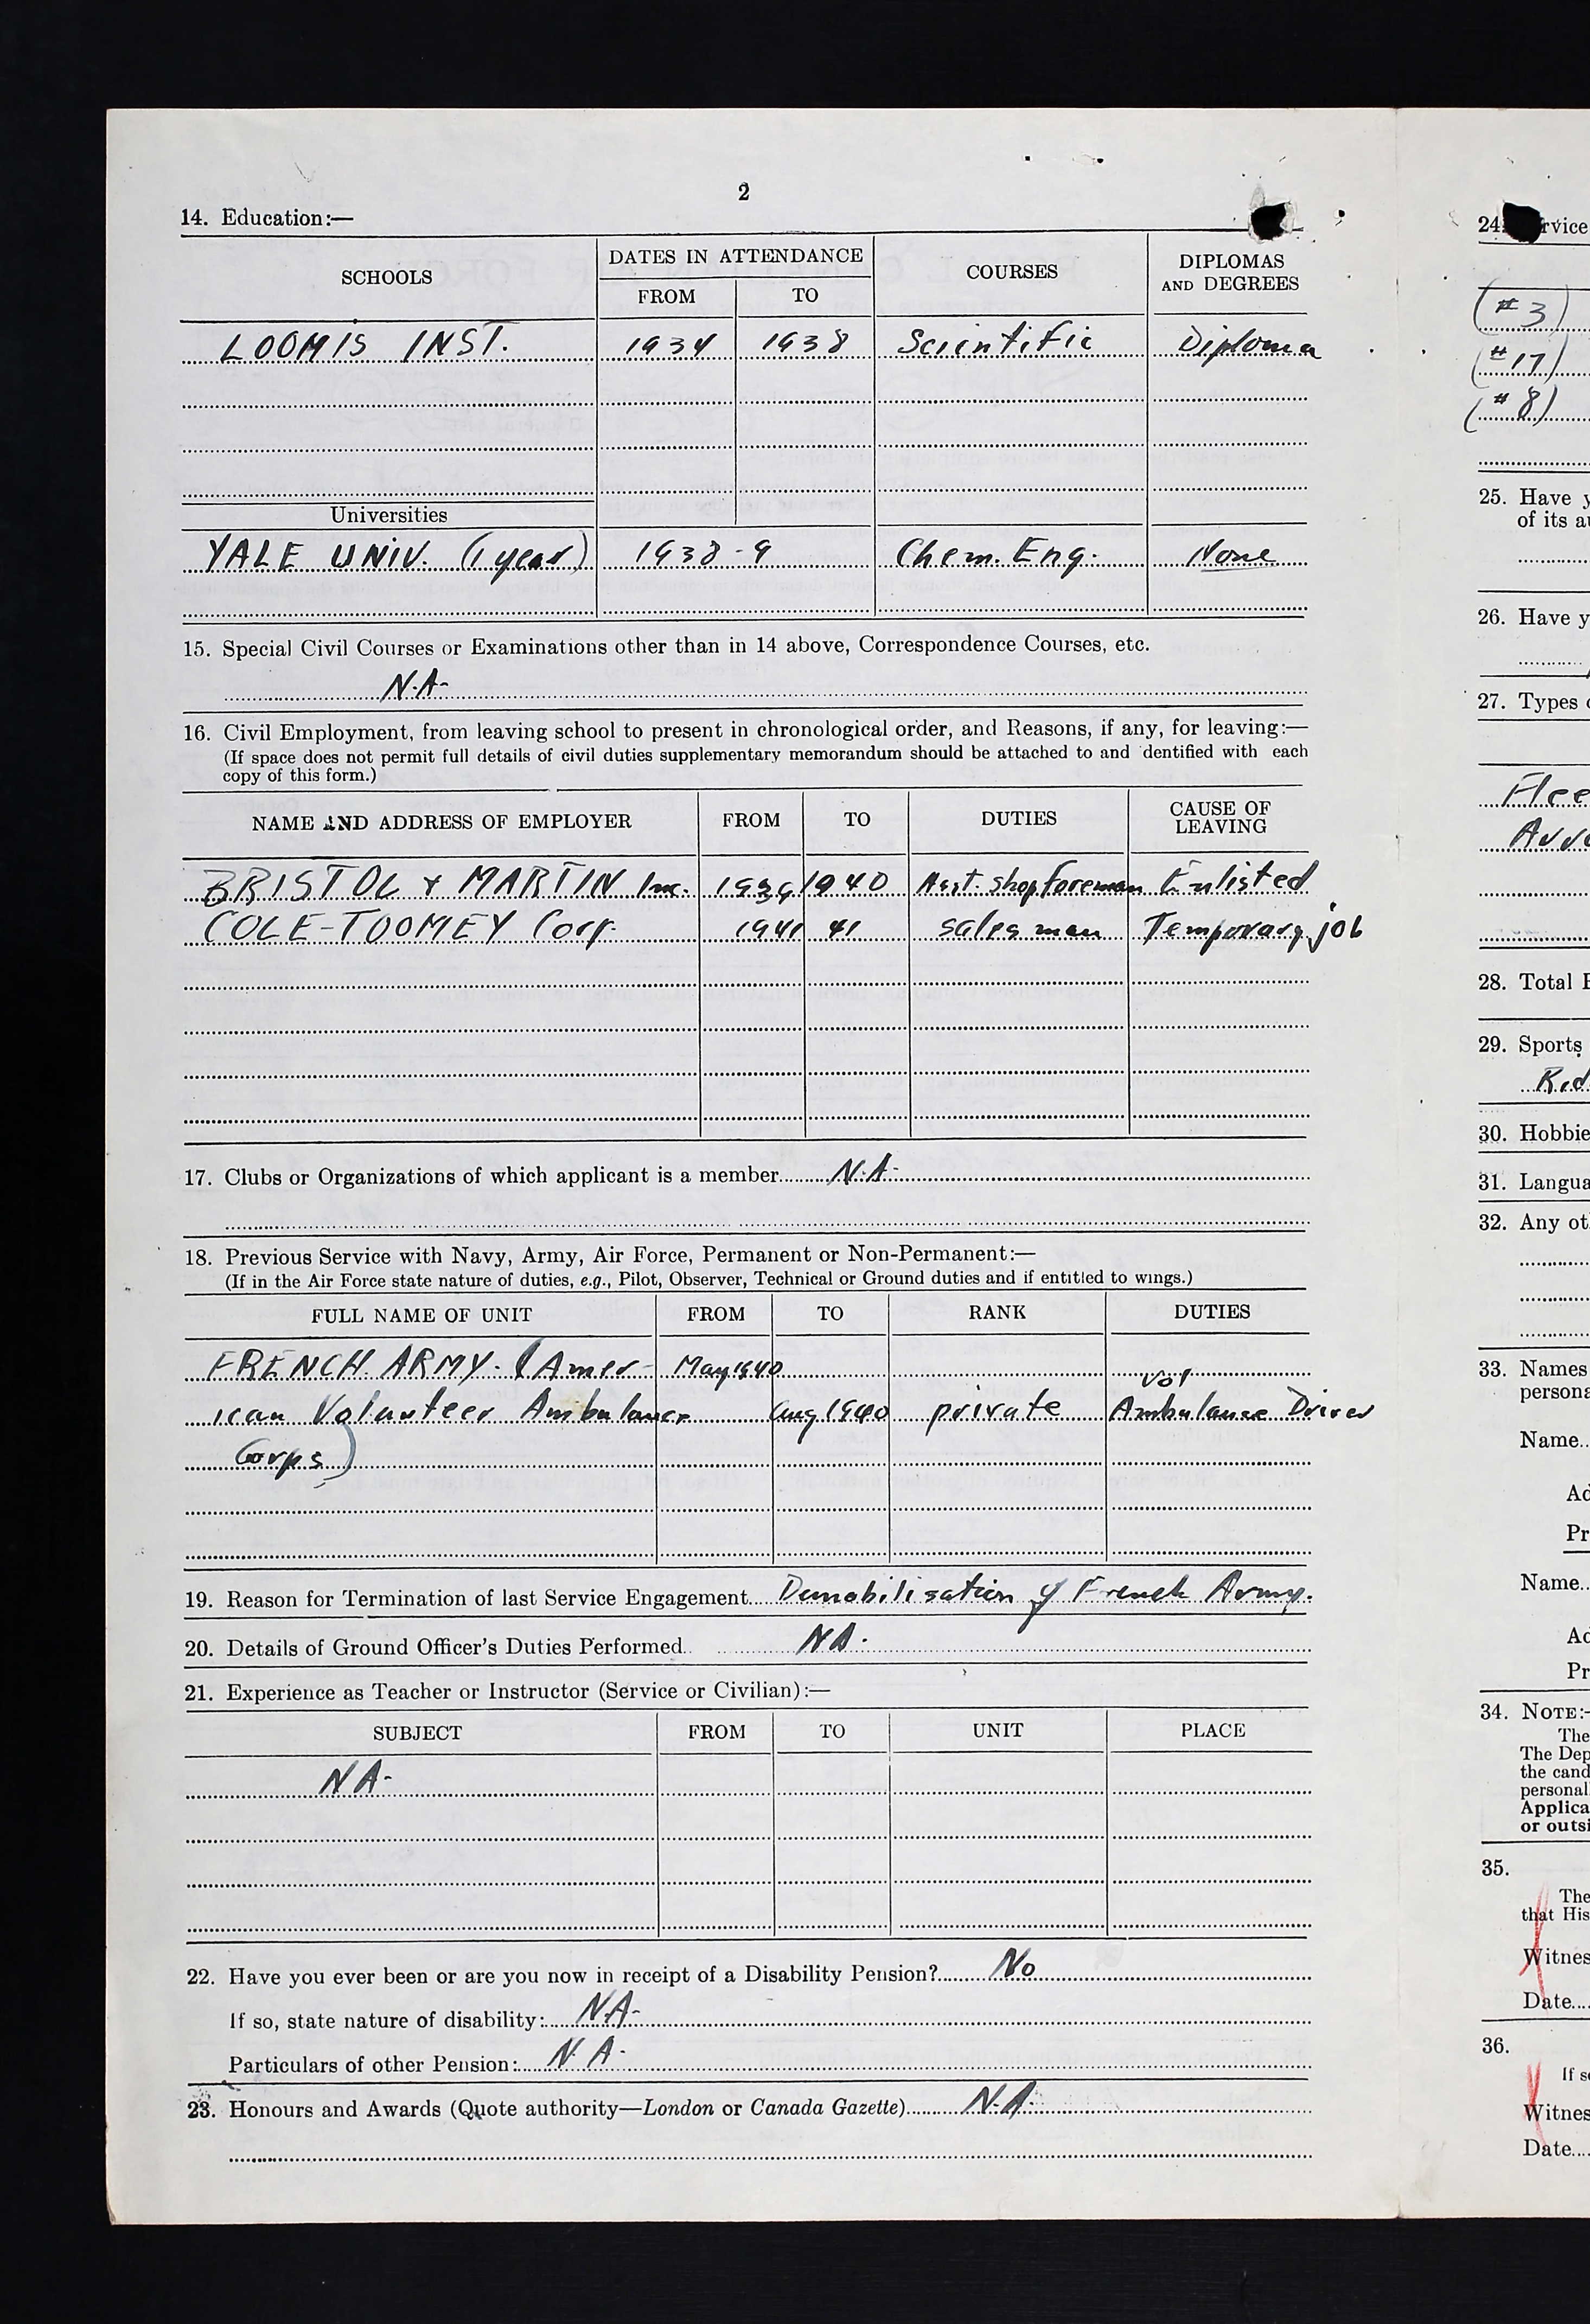 2
14. Education:—
SCHOOLS DATES IN ATTENDANCE COURSES DIPLOMAS AND DEGREES
FROM TO
LOOMIS INST. 1934 1938 Scientific Diploma
Universities
YALE UNIV. (1 year) 1938-9 Chem. Eng. None
15. Special Civil Courses or Examinations other than in 14 above, Correspondence Courses, etc.
N.A.
16. Civil Employment, from leaving school to present in chronological order, and Reasons, if any, for leaving:—
(If space does not permit full details of civil duties supplementary memorandum should be attached to and dentified with each
copy of this form.)
NAME AND ADDRESS OF EMPLOYER FROM TO DUTIES CAUSE OF LEAVING
BRISTOL & MARTIN Inc. 1939 1940 Asst. shop foreman Enlisted
COLE-TOOMEY Corp. 1941 41 salesman Temporary job
17. Clubs or Organizations of which applicant is a member N.A.
18. Previous Service with Navy, Army, Air Force, Permanent or Non-Permanent:—
(If in the Air Force state nature of duties, e.g., Pilot, Observer, Technical or Ground duties and if entitled to wings.)
FULL NAME OF UNIT FROM TO RANK DUTIES
FRENCH ARMY. (Amer- May 1940 vol
ican Volunteer Ambulance Aug 1940 private Ambulance Driver
Corps)
19. Reason for Termination of last Service Engagement Demobilisation of French Army.
20. Details of Ground Officer's Duties Performed NA.
21. Experience as Teacher or Instructor (Service or Civilian):—
SUBJECT FROM TO UNIT PLACE
NA.
22. Have you ever been or are you now in receipt of a Disability Pension? No
If so, state nature of disability: N.A.
Particulars of other Pension: N.A.
23. Honours and Awards (Quote authority—London or Canada Gazette) N.A.
24. rvice
(#3)
(#17)
(#8)
25. Have y
of its au
26. Have y
27. Types o
Flee
28. Total
29. Sports
Rid
30. Hobbie
31. Langua
32. Any ot
33. Names
persona
Name
Ad
Pr
Name
Ad
Pr
34. NOTE:-
The
The Dep
the cand
personal
Applica
or outsi
35.
The
that His
Witnes
Date
36.
If s
Witnes
Date